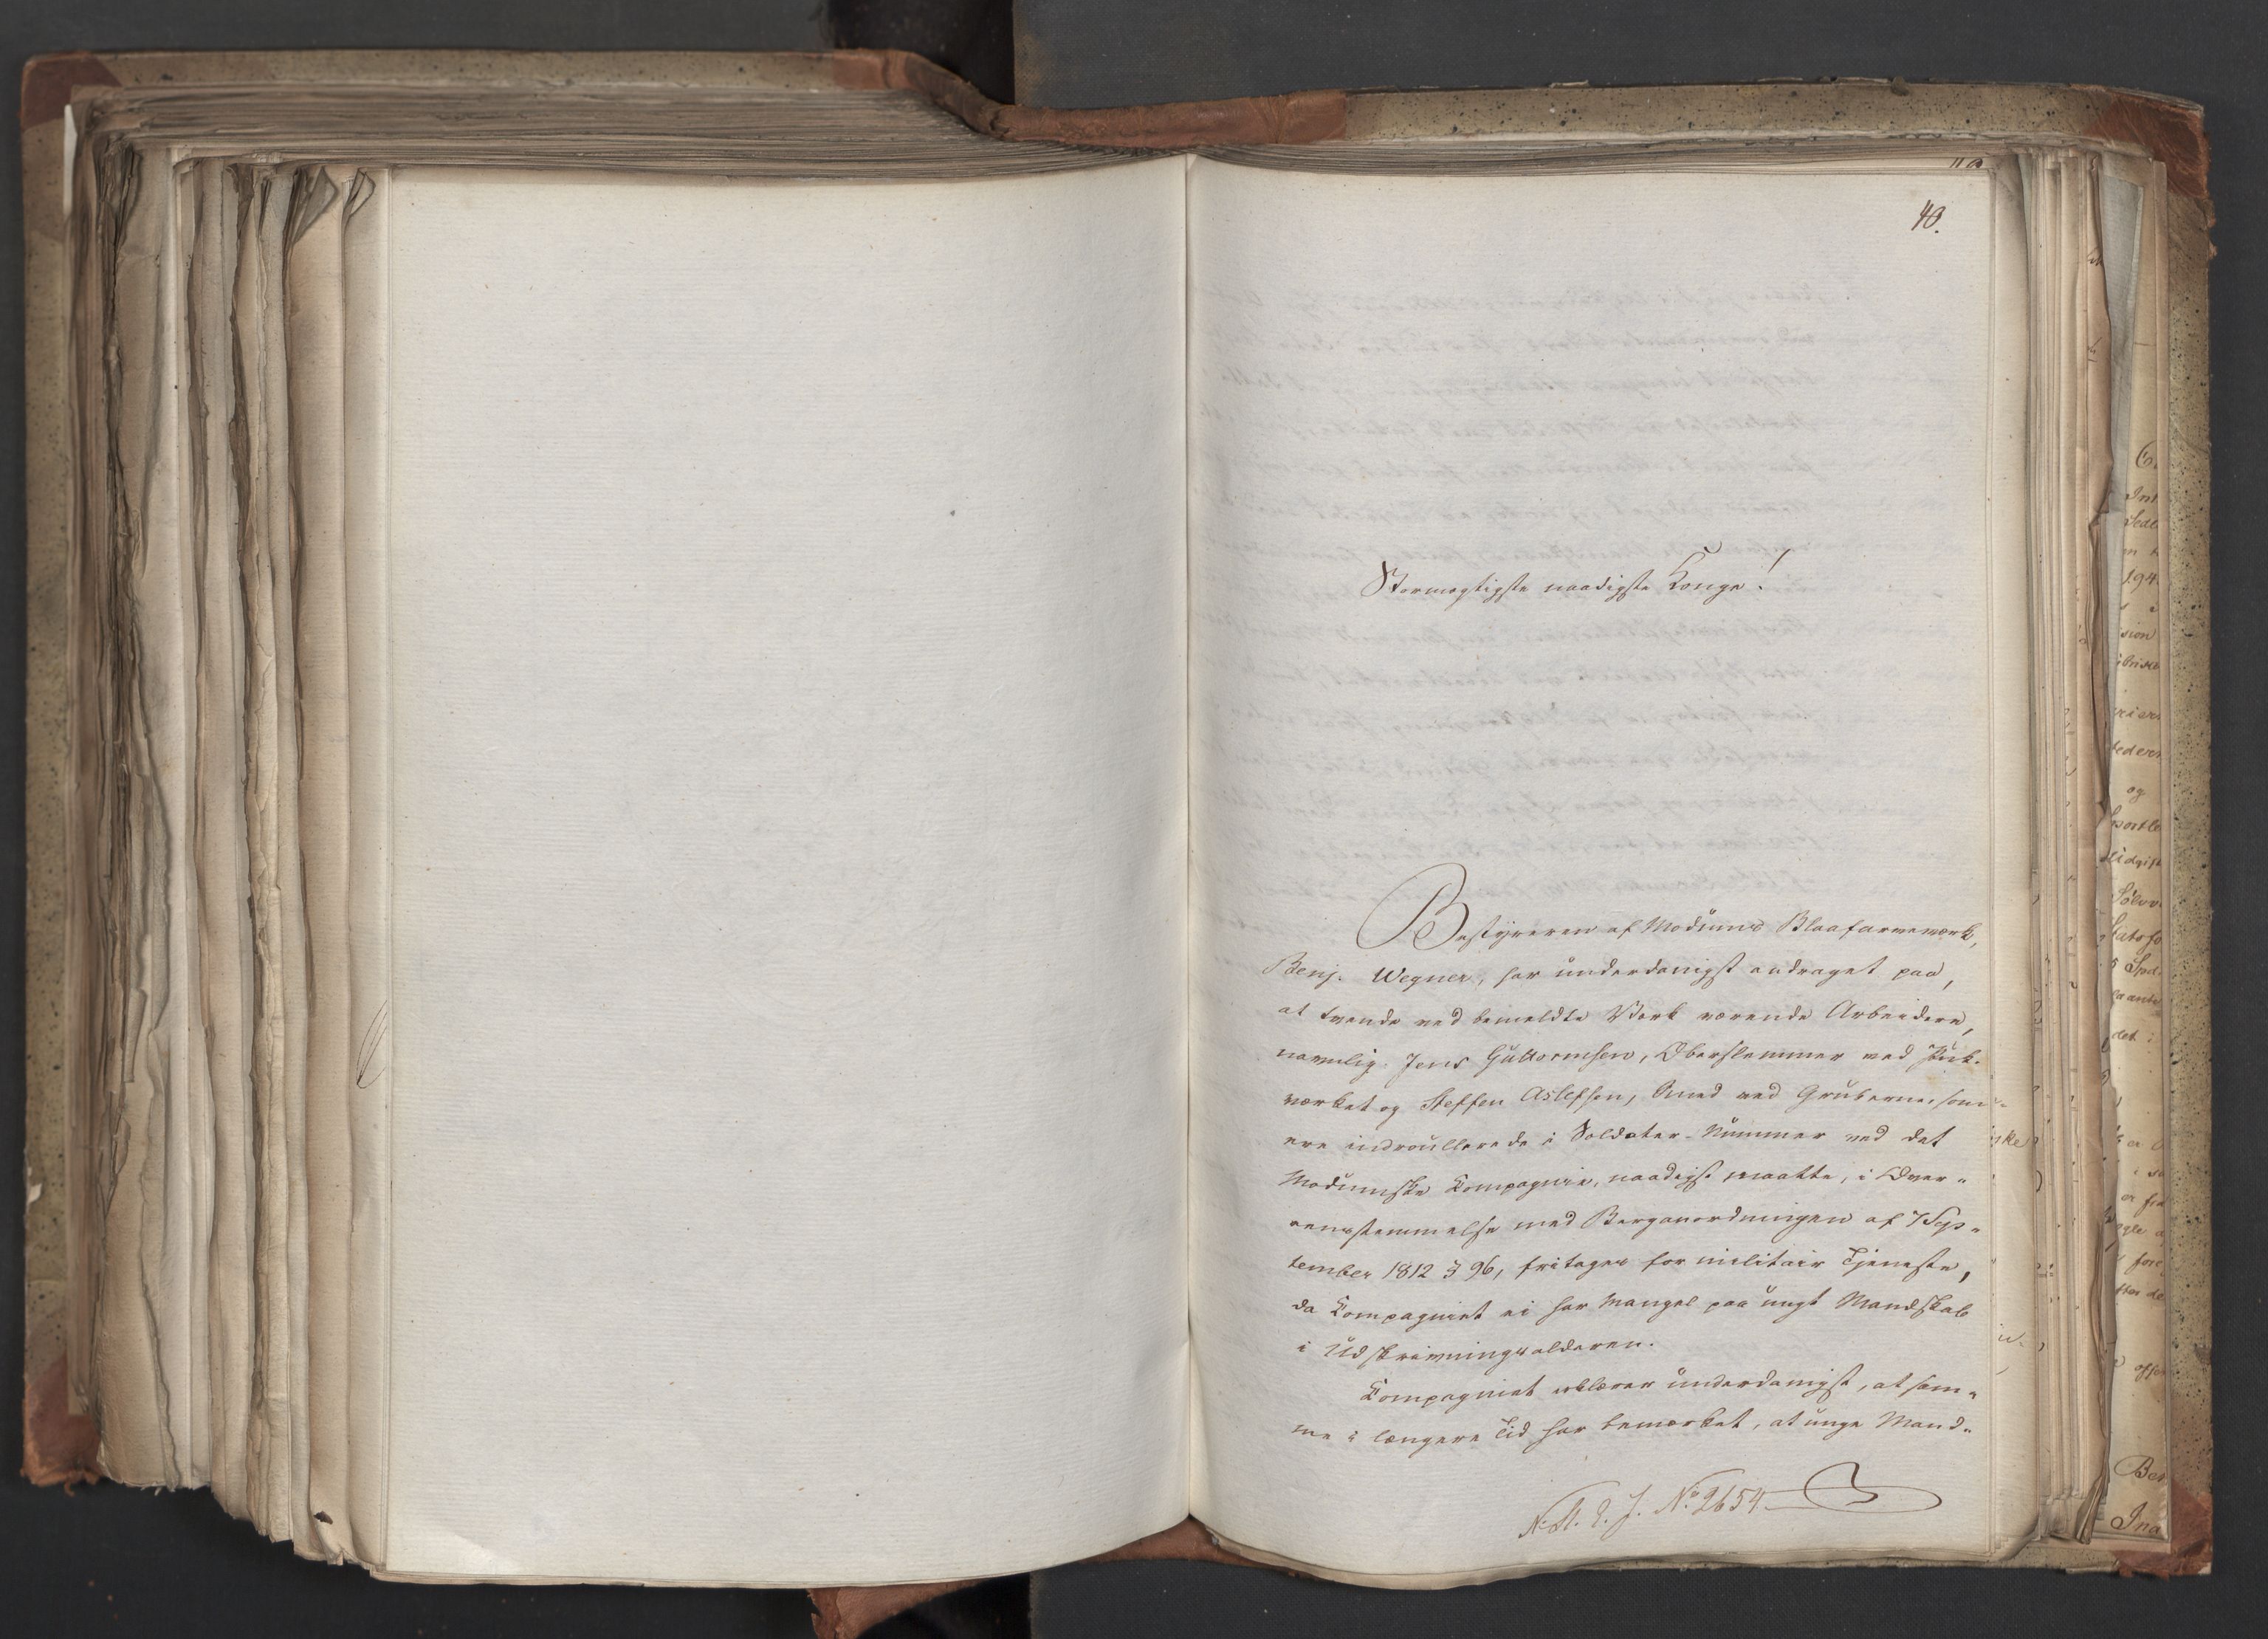 40.
Stormægtigste naadigste Konge!
Bestyreren af Modums Blaafarveværk,
Benj. Wegner, har underdanigst andraget paa,
at tvende ved bemeldte Værk værende Arbeidere,
navnlig: Jens Guttormsen, Oberslemmer ved Puk-
værket og Steffen Aslefsen, Smed ved Gruberne, som
ere indroullerede i Soldater-Nummer ved det
Modumske Kompagnie, naadigst maatte, i Over-
eensstemmelse med Berganordningen af 7 Sep-
tember 1812 § 96, fritages for militair Tjeneste,
da Kompagniet ei har Mangel paa ungt Mandskab
i Udskrivningsalderen.
Kompagniet erklærer underdanigst, at sam-
me i længere Tid har bemærket, at unge Mand-
N. A. E. J. No. 2654